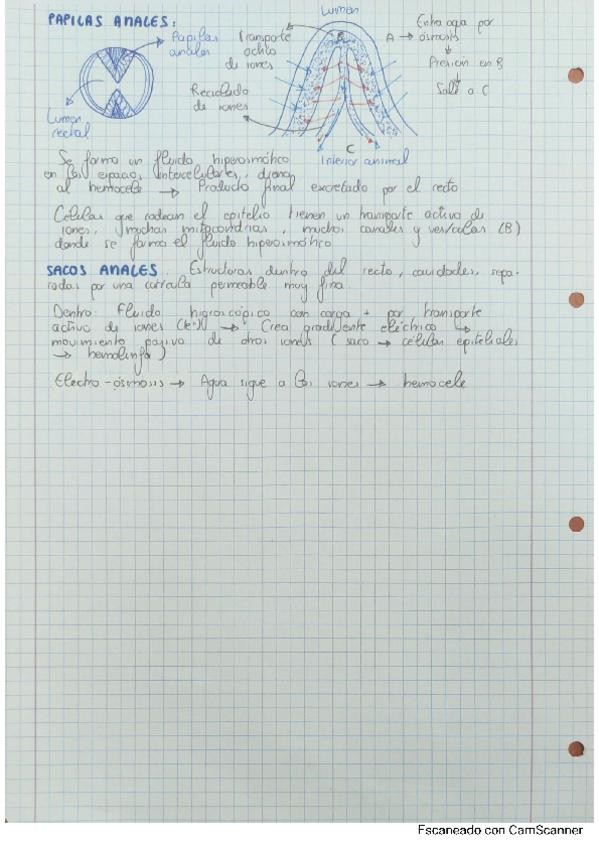 PAPILAS ANALES:
Papilas
anales
Lumen
rectal
Transporte
activo
de iones
Reciclado
de iones
Lumen
B
C
Interior animal
A → Entra agua por
ósmosis
↓
Presión en B
↓
Sale a C
Se forma un fluido hiperosmótico
en los espacios intercelulares, drena
al hemocele → Producto final excretado por el recto
Celulas que rodean el epitelio tienen un transporte activo de
iones, muchas mitocondrias, muchos canales y vesículas (B)
donde se forma el fluido hiperosmótico
SACOS ANALES. Estructuras dentro del recto, cavidades, sepa-
radas por una cutícula permeable muy fina.
Dentro: Fluido higroscópico con carga + por transporte
activo de iones → Crea gradiente eléctrico ↳
movimiento pasivo de otros iones (saco → células epiteliales
→ hemolinfa)
Electro-ósmosis → Agua sigue a los iones → hemocele
Escaneado con CamScanner